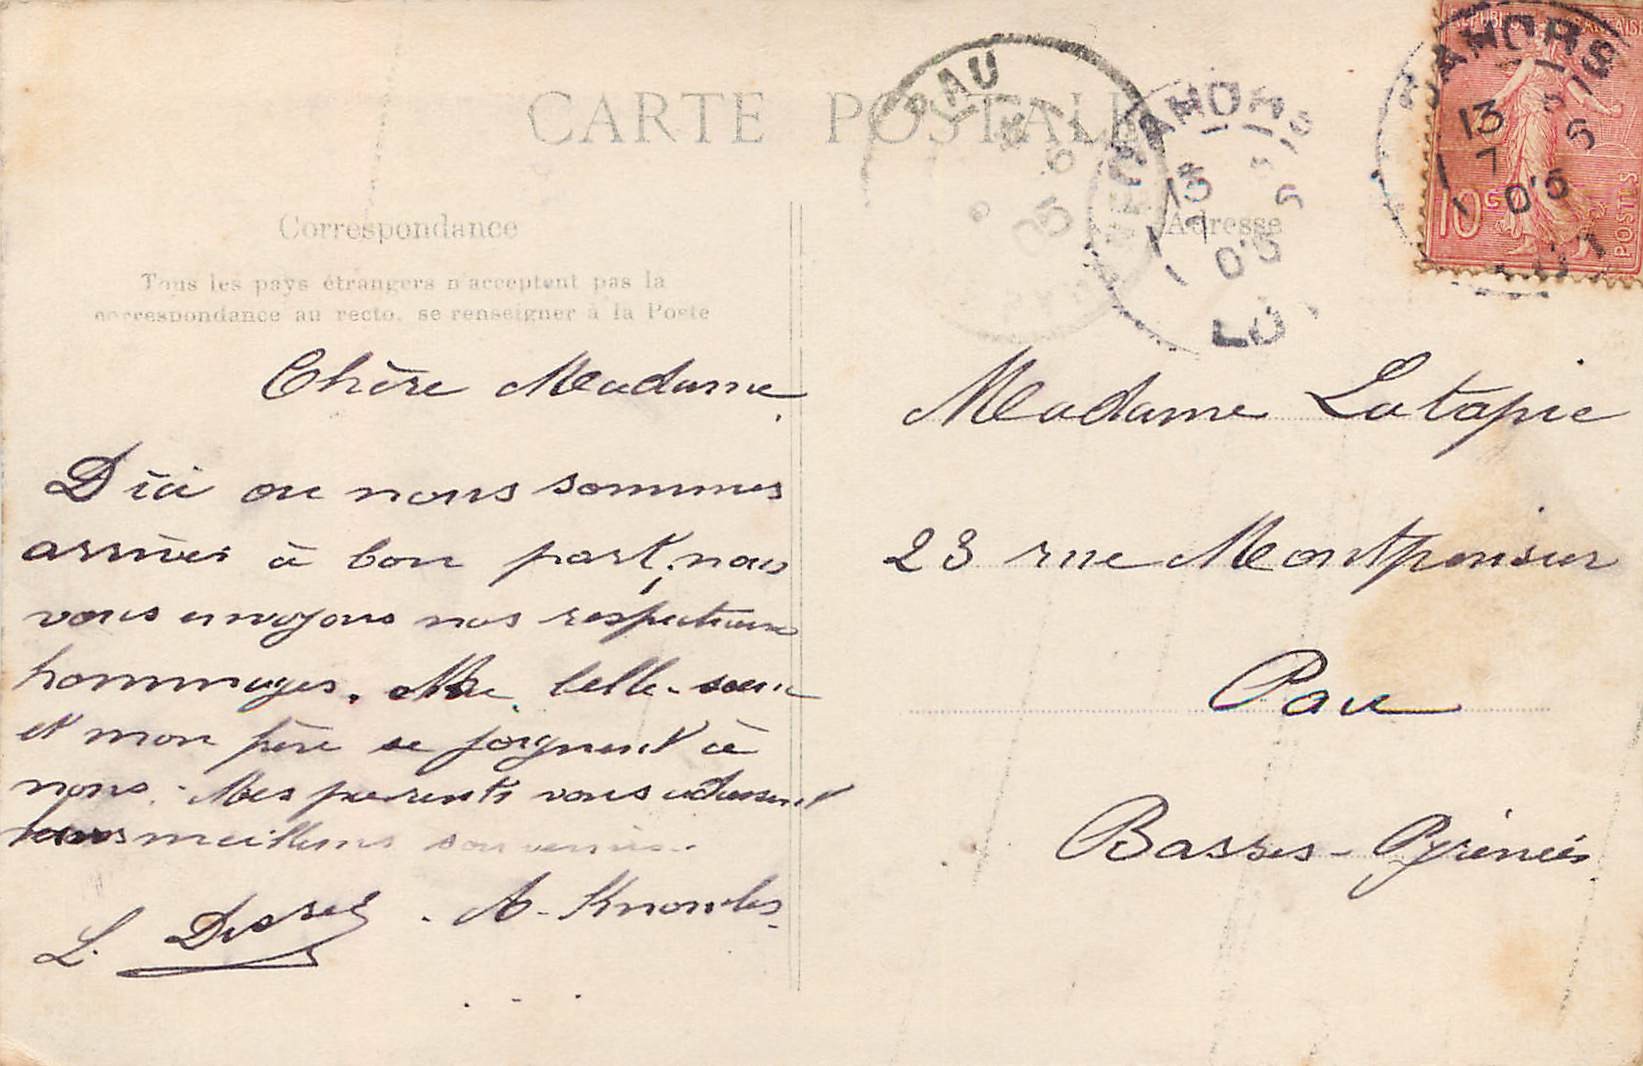 CARTE POSTALE
Correspondance
Tous les pays étrangers n'acceptent pas la
correspondance au recto, se renseigner à la Poste
Adresse
PAU
CAHORS
13
7
05
LOT
CAHORS
13
7
05
LOT
RÉPUBLIQUE FRANÇAISE
10c
POSTES
Chère Madame,
D'ici ou nous sommes
arrivés à bon port, nous
vous envoyons nos respectueux
hommages. Ma belle-soeur
et mon père se joignent à
nous. Mes parents vous adressent
leurs meilleurs souvenirs.
L. A. Knowles
Madame Latapie
23 rue Montpensier
Pau
Basses-Pyrénées